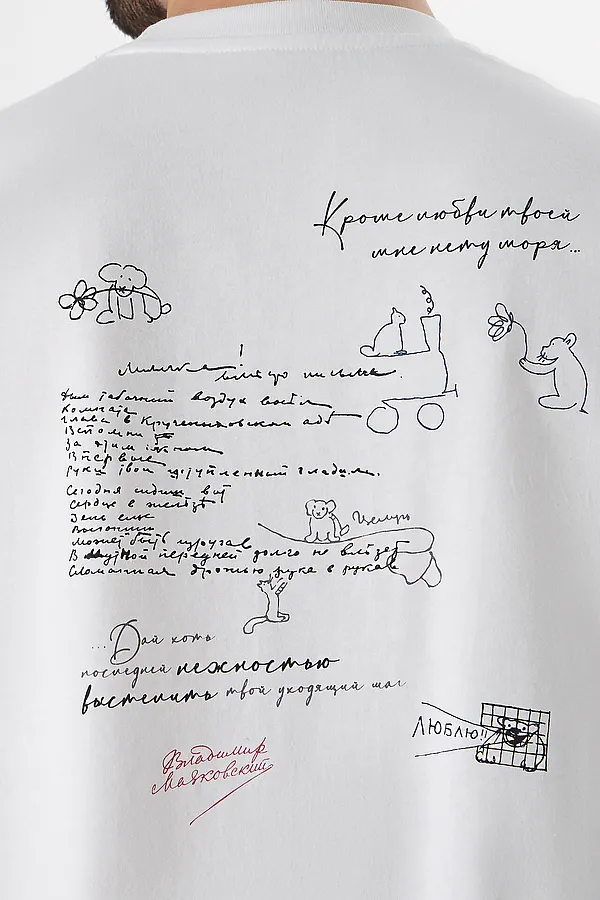 Кроме любви твоей
мне нету моря...
Лиличка!
Вместо письма.
Дым табачный воздух выел.
Комната
глава в Крученыховском аде
Вспомни
За этим окном
Впервые
руки твои исступленный гладил.
Сегодня сидишь вот
Сердце в железе
День еще
Выгонишь
Может быть изругав
В мутной передней долго не влезет
Сломанная дрожью рука в рукав
Целую
...Дай хоть
последней нежностью
выстелить твой уходящий шаг
ЛЮБЛЮ!!
Владимир
Маяковский